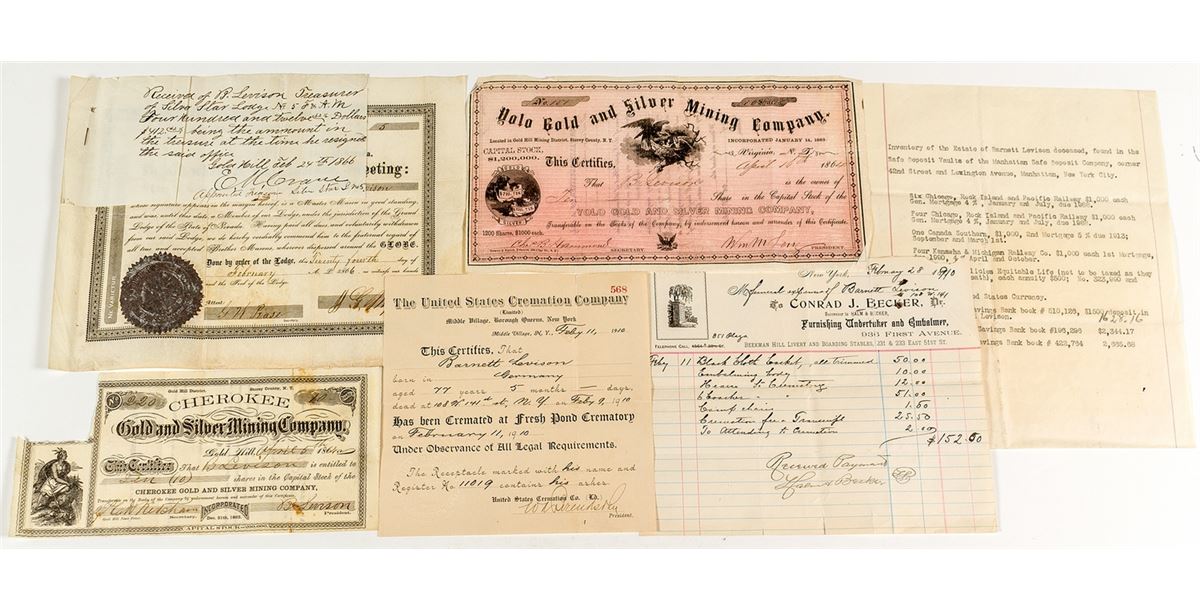 Received of B. Levison Treasurer
of Silver Star Lodge No 5 F & A.M
Four Hundred and twelve Dollars
$412 being the ammount in
the treasure at the time he resigned
the said office
Gold Hill Feb 24th 1866
Silver Star No5
5
eeting:
is a Master Mason in good standing,
and was, until this date, a Member of our Lodge, under the jurisdiction of the Grand
Lodge of the State of Nevada. Having paid all dues, and voluntarily withdrawn
from our said Lodge, we do hereby cordially commend him to the fraternal regard of
all true and accepted Brother Masons, wherever dispersed around the GLOBE.
Done by order of the Lodge, this Twenty fourth day of
February A. D. 1866
and the Seal of the Lodge.
Attest
No. 101
Yolo Gold and Silver Mining Company.
Located in Gold Hill Mining District, Storey County, N. T.
INCORPORATED JANUARY 14, 1863
CAPITAL STOCK,
$1,200,000.
Virginia, N. T.
April 1864
This Certifies,
That B Levison is the owner of
Ten Share in the Capital Stock of the
YOLO GOLD AND SILVER MINING COMPANY,
Transferable on the Books of the Company, by indorsement hereon and surrender of this Certificate.
1200 Shares, $1000 each.
SECRETARY
PRESIDENT
Inventory of the Estate of Barnett Levison deceased, found in the
Safe Deposit Vaults of the Manhattan Safe Deposit Company, corner
42nd Street and Lexington Avenue, Manhattan, New York City.
Six Chicago, Rock Island and Pacific Railway $1,000 each
Gen. Mortgage 4 %, January and July, due 1988.
Four Chicago, Rock Island and Pacific Railway $1,000 each
Gen. Mortgage 4 %, January and July, due 1988.
One Canada Southern, $1,000, 2nd Mortgage 5 % due 1913;
September and March 1st.
Four Kanawha & Michigan Railway Co. $1,000 each 1st Mortgage,
1990, April and October.
licies Equitable Life (not to be taxed as they
ath), each annuity $500; No. 323,960 and
ed States Currency.
avings Bank book # 510,128, $1000 deposit in
Levison. 1028.76
avings Bank book #196,296 $2,344.17
avings Bank book # 422,764 2,686.68
No 220
10
Gold Hill District, Storey County, N. T.
CHEROKEE
Gold and Silver Mining Company,
Gold Hill, April 5 186
This Certifies That B Levison is entitled to
Ten (10) shares in the Capital Stock of the
CHEROKEE GOLD AND SILVER MINING COMPANY,
Transferable on the Books of the Company by indorsement hereon and surrender of this Certificate.
INCORPORATED
Dec. 31th, 1862.
Secretary.
B Levison
President.
CAPITAL STOCK
568
The United States Cremation Company
(Limited)
Middle Village, Borough Queens, New York
Middle Village, N. Y., Feby 11, 1910
This Certifies, That
Barnett Levison
born in Germany
aged 77 years 5 months — days,
dead at 108 W 141st st. N. Y. on Feby 9, 1910
Has been Cremated at Fresh Pond Crematory
on February 11, 1910.
Under Observance of All Legal Requirements.
The Receptacle marked with his name and
Register No. 11019 contains his ashes.
United States Cremation Co. Ld.
President.
New York, February 28 1910
M funeral expenses of Barnett Levison
To CONRAD J. BECKER, Dr.
Successor to HALM & BECKER,
Furnishing Undertaker and Embalmer,
936 FIRST AVENUE.
TELEPHONE CALL
BEEKMAN HILL LIVERY AND BOARDING STABLES, 231 & 233 EAST 51ST ST.
Feby 11 Black Cloth Casket, all trimmed 50.00
Embalming body 10.00
Hearse to Crematory 12.00
6 Coaches " " 51.00
Camp chairs 1.50
Cremation fee & Transcript 25.50
To Attending to Cremation 2.00
$152.00
Received Payment